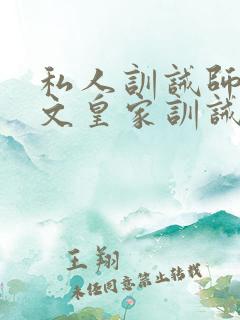 私人訓誡師
文皇家訓誡
王翔
未经同意禁止转载